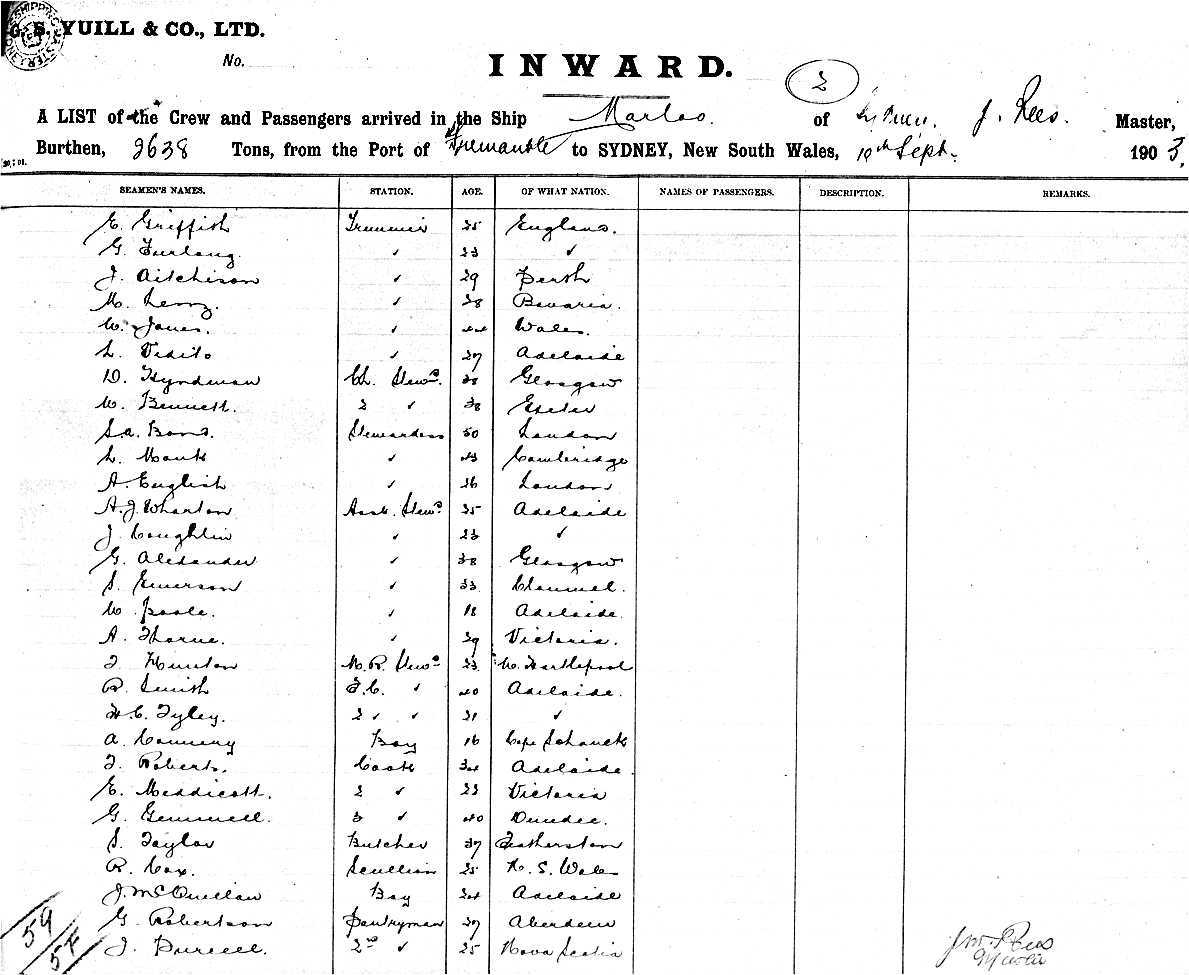 G. S. YUILL & CO., LTD.
No.
INWARD.
2
A LIST of the Crew and Passengers arrived in the Ship Marloo of Sydney. J. Rees. Master,
Burthen, 2638 Tons, from the Port of Fremantle to SYDNEY, New South Wales, 10th Sept. 1903.
SEAMEN'S NAMES. STATION. AGE. OF WHAT NATION. NAMES OF PASSENGERS. DESCRIPTION. REMARKS.
E. Griffith Trimmer 25 England.
G. Furlong. ✓ 23 ✓
J. Aitchison ✓ 29 Perth
M. ✓ 28 Bavaria.
W. Jones. ✓ 44 Wales.
L. ✓ 27 Adelaide
D. Hyndman Ch. Stewd. 38 Glasgow
W. Bennett. 2 ✓ 38 Exeter
S.A. Bond. Stewardess 50 London
L. Monk ✓ 43 Cambridge
A. English ✓ 26 London
A.J. Wharton Asst. Stewd. 25 Adelaide
J. Coughlin ✓ 23 ✓
G. Alexander ✓ 38 Glasgow
S. Emerson ✓ 33 Clonmel.
W. Poole. ✓ 18 Adelaide.
A. Thorne. ✓ 29 Victoria.
T. Hunton M.R. Stewd 23 W. Hartlepool
R. Smith F.C. ✓ 40 Adelaide.
H.C. Tyley. 2 ✓ ✓ 21 ✓
A. Boy 16 Cape Schanck
T. Roberts. Cook 34 Adelaide.
E. Meddicott. 2 ✓ 22 Victoria
G. Gemmell. 3 ✓ 40 Dundee.
S. Taylor Butcher 37 Featherston
R. Cox. Scullion 25 N. S. Wales
J. McQuillan Boy 24 Adelaide
G. Robertson Pantryman 27 Aberdeen
J. Purcell. 2nd ✓ 25 Nova Scotia
59
57
J. Rees